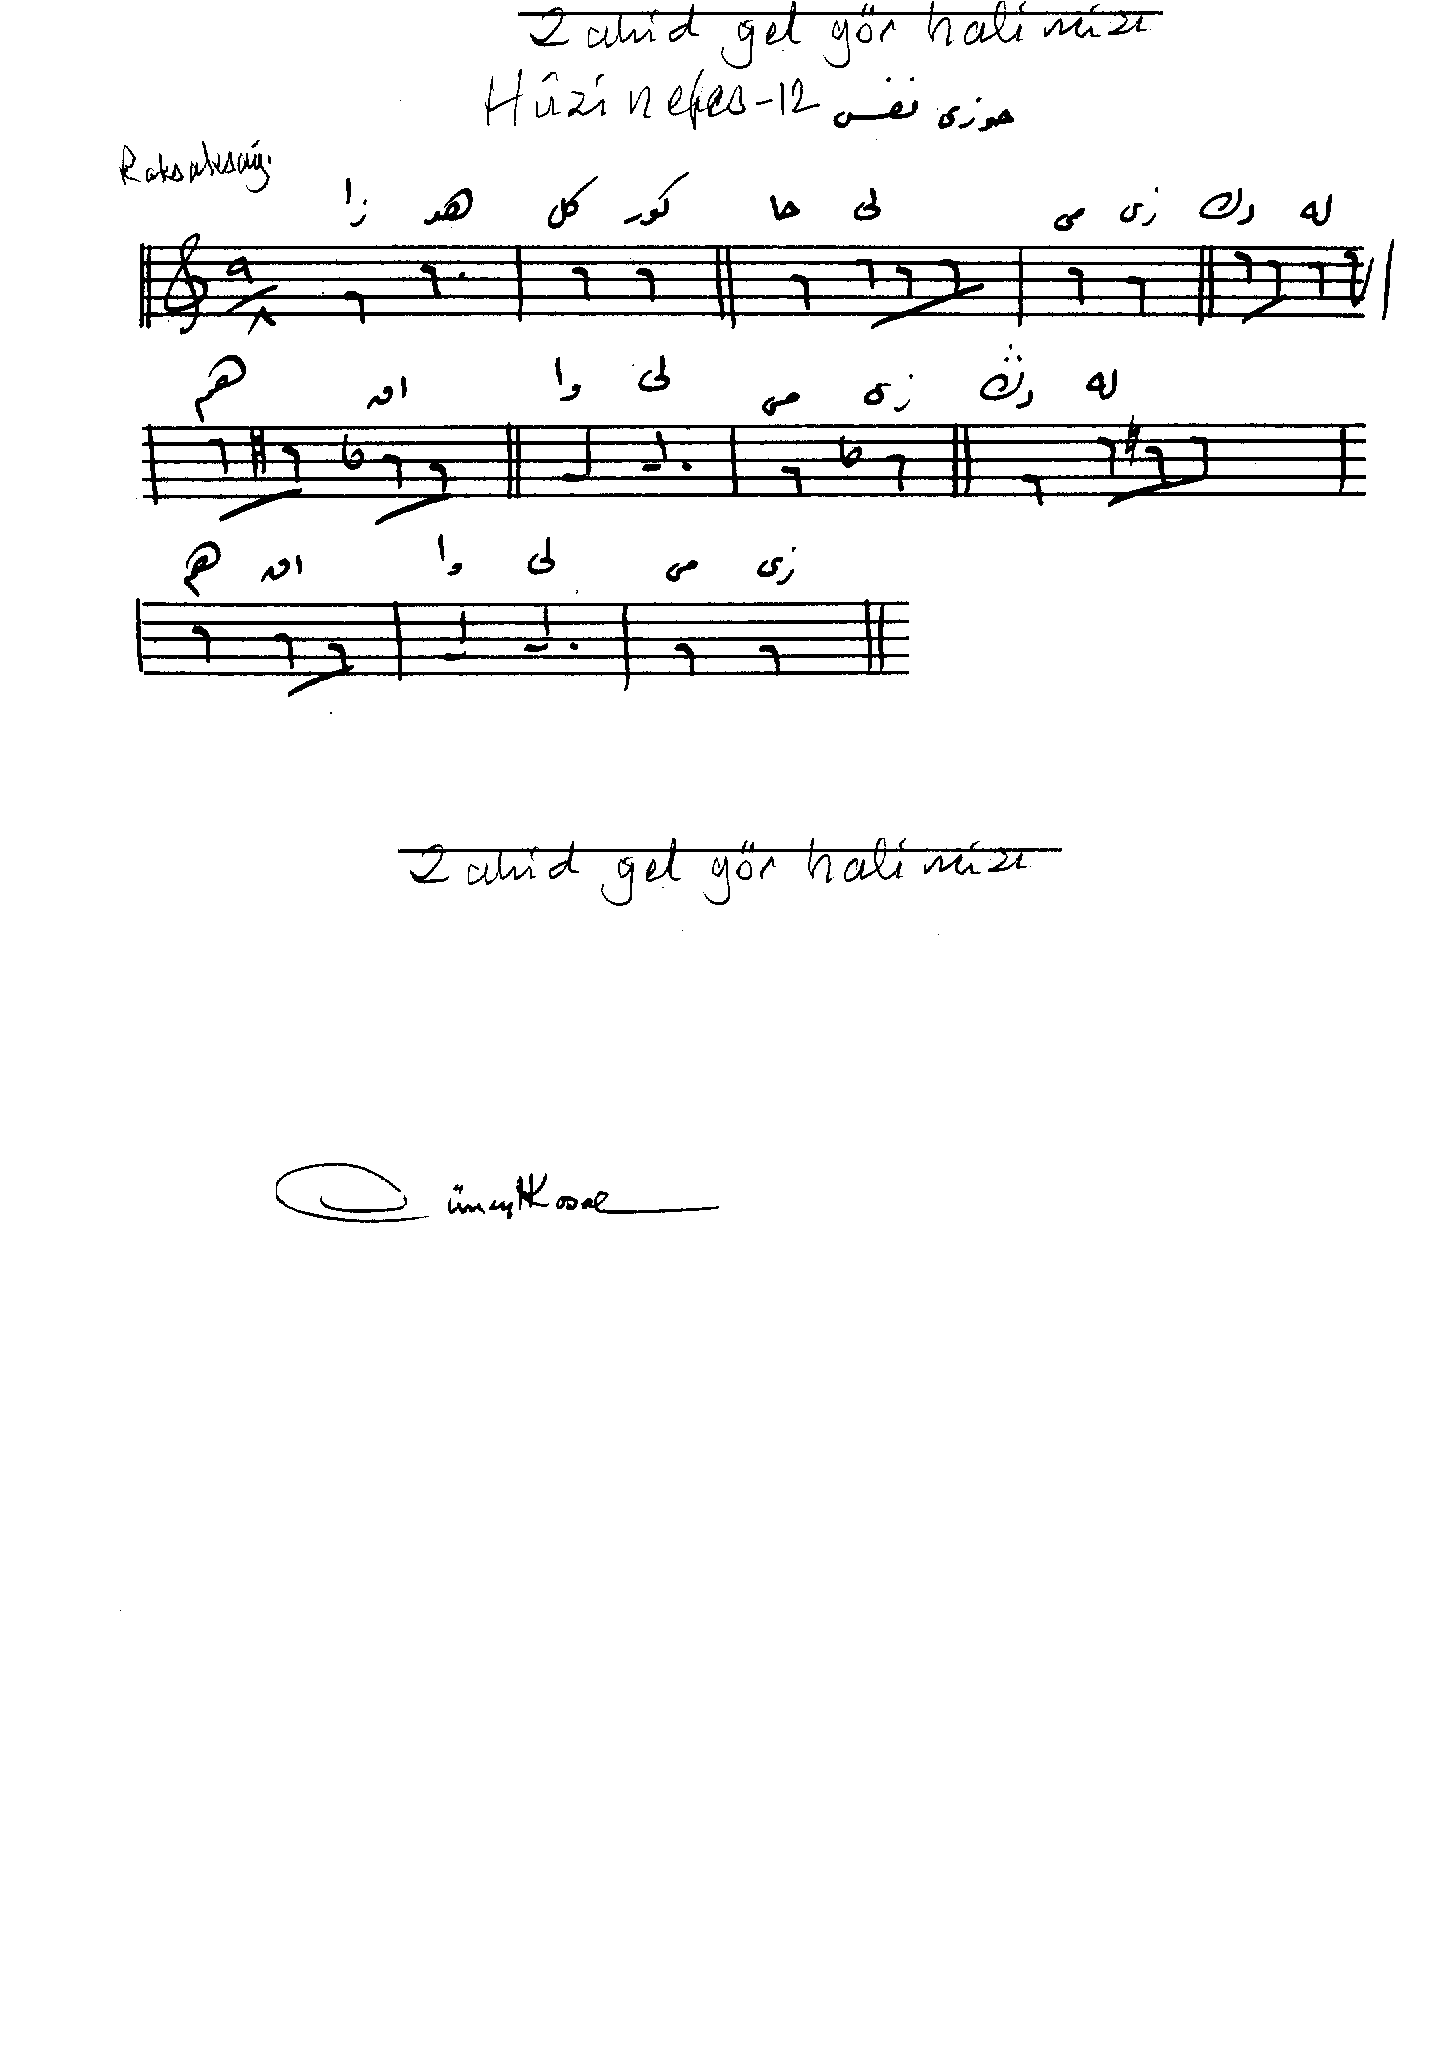 Zahid gel gör halimizi
Hûzi nefes-12 حوزی نفس
Raksaksağı
زا هد كل كور حا لی می زی رك له
هم ا وا لی می زی رك له
هم ا وا لی می زی
Zahid gel gör halimizi
Cüneyt Kosal